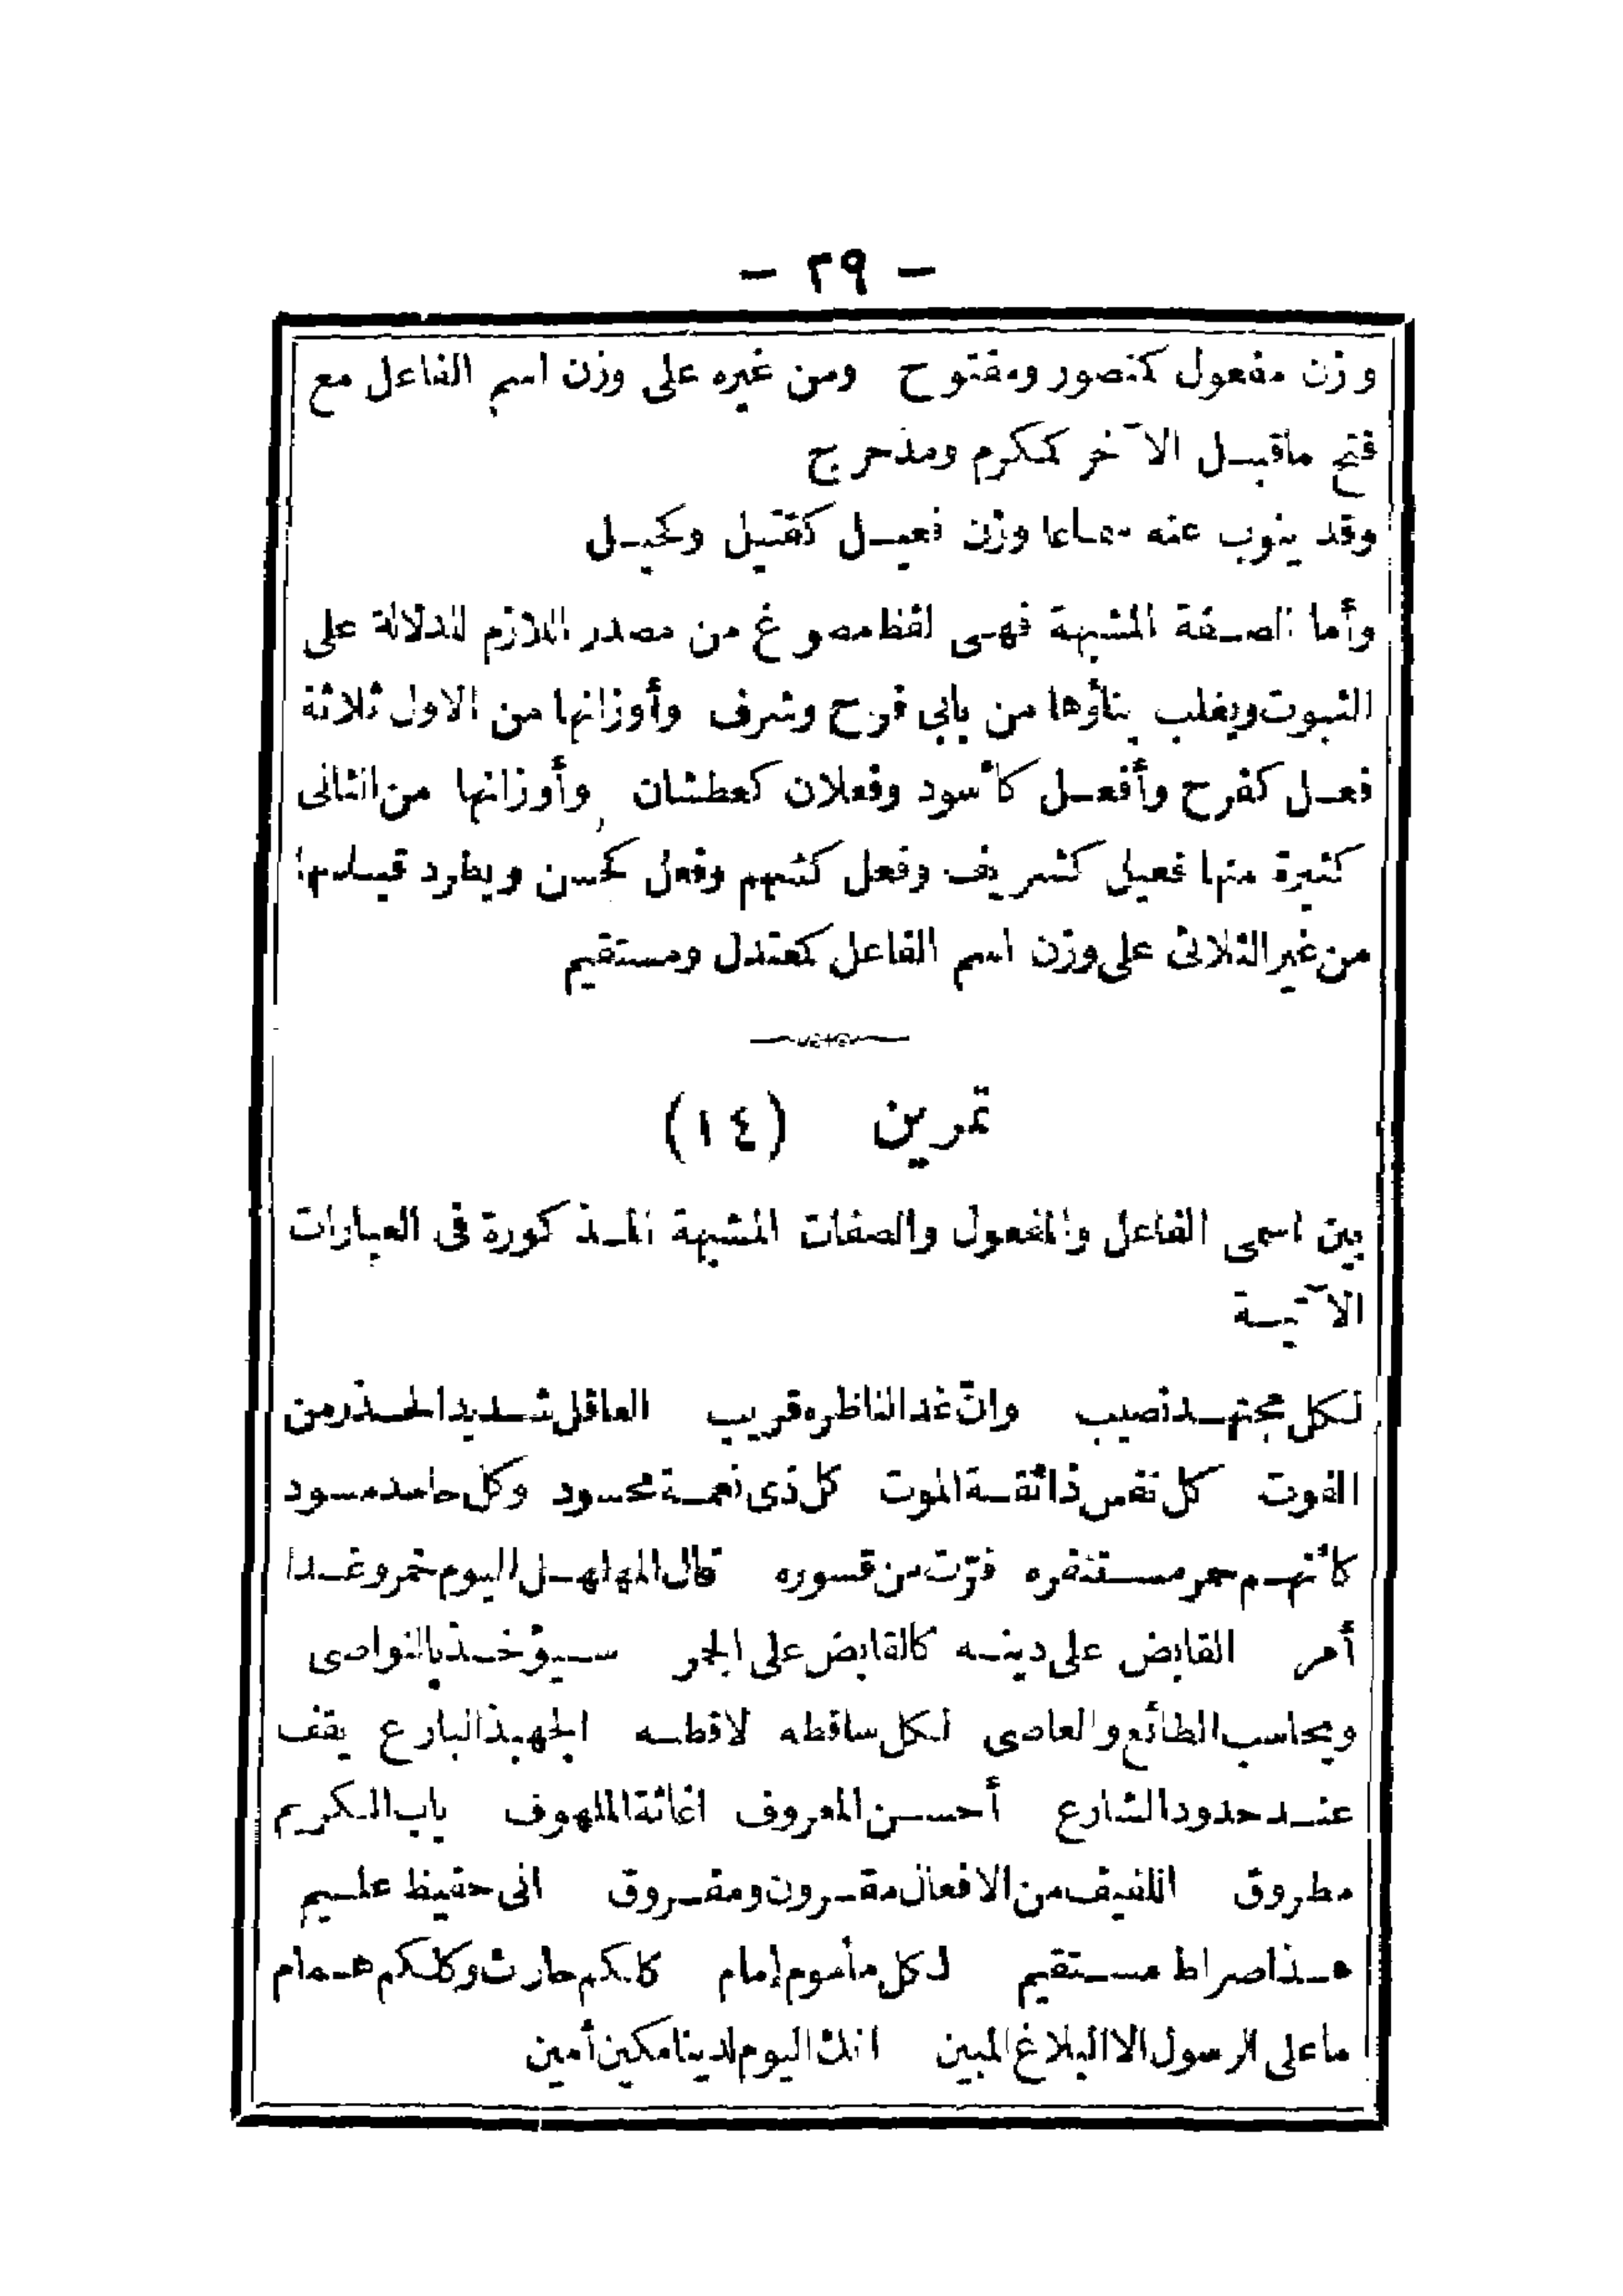 - ٢٩ -
وزن مفعول كمنصور ومفتوح ومن غيره على وزن اسم الفاعل مع
فتح ماقبل الآخر كمكرم ومدحرج
وقد ينوب عنه سماعا وزن فعيل كقتيل وكحيل
وأما الصفة المشبهة فهى لفظ مصوغ من مصدر اللازم للدلالة على
الثبوت ويغلب بناؤها من بابى فرح وشرف وأوزانها من الاول ثلاثة
فعل كفرح وأفعل كأسود وفعلان كعطشان وأوزانها من الثانى
كثيرة منها فعيل كشريف وفعل كشهم وفعل كحسن ويطرد قياسها
من غير الثلاثى على وزن اسم الفاعل كمعتدل ومستقيم
تمرين (١٤)
بين اسمى الفاعل والمفعول والصفات المشبهة المذكورة فى العبارات
الآتية
لكل مجتهد نصيب وانّ غدا لناظره قريب العاقل شديد الحذر من
الفوت كل نفس ذائقة الموت كل ذى نعمة محسود وكل حاسد مسود
كأنهم حمر مستنفره فرّت من قسوره قال المهلهل اليوم خمر وغدا
أمر القابض على دينه كالقابض على الجمر سيؤخذ بالنواصى
ويحاسب الطائع والعاصى لكل ساقطه لاقطه الجهبذ البارع يقف
عند حدود الشارع أحسن المعروف اغاثة الملهوف باب الكريم
مطروق اللفيف من الافعال مقرون ومفروق انى حفيظ عليم
هذا صراط مستقيم لكل مأموم إمام كلكم حارث وكلكم همام
ماعلى الرسول الا البلاغ المبين انك اليوم لدينا مكين أمين